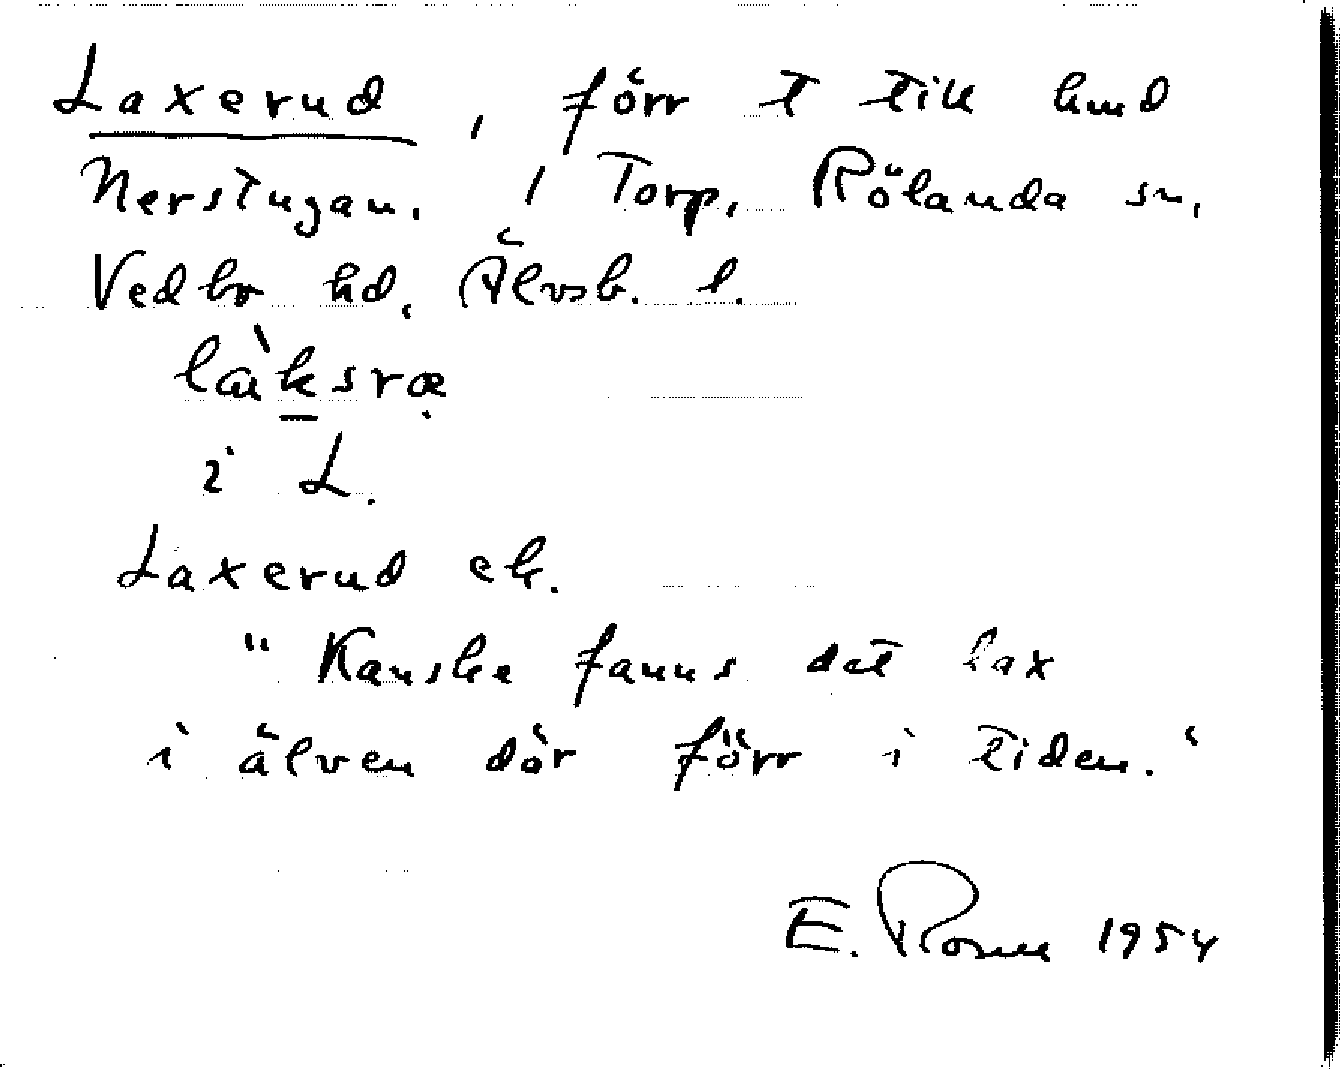 Laxerud, förr t till hmd
Nerstugan. / Torp, Rölanda sn,
Vedbo hd, Älvsb. l.
làksræ
i L.
Laxerud ek.
"Kanske fanns det lax
i älven där förr i tiden."
E. Rosne 1954